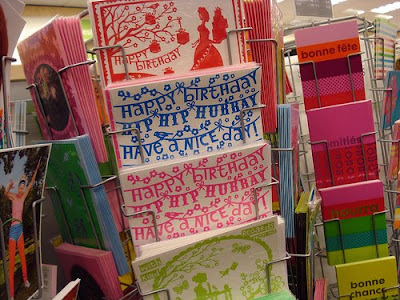 happy
birthday
HAPPY BIRTHDAY
HIP HIP HURRAY
HAVE A NICE DAY!
HAPPY BIRTHDAY
HIP HIP HURRAY
HAVE A NICE DAY!
bonne fête
amitiés
hourra
bonne
chance
bonne